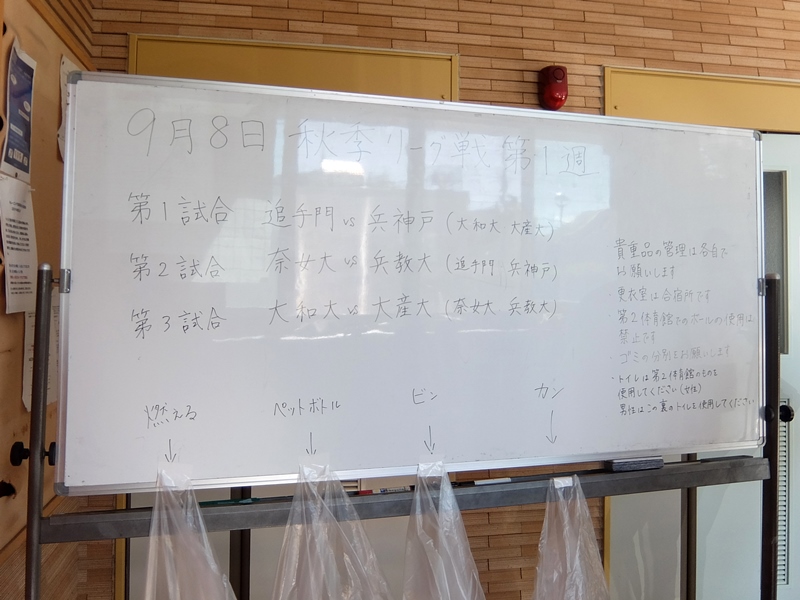 9月8日 秋季リーグ戦 第1週
第1試合 追手門 vs 兵神戸 (大和大 大産大)
第2試合 奈女大 vs 兵教大 (追手門 兵神戸)
第3試合 大和大 vs 大産大 (奈女大 兵教大)
貴重品の管理は各自で
お願いします
・更衣室は合宿所です
・第2体育館でのボールの使用は
禁止です
・ゴミの分別をお願いします
・トイレは第2体育館のものを
使用してください(女性)
男性はこの裏のトイレを使用してください
燃える
ペットボトル
ビン
カン
↓
↓
↓
↓